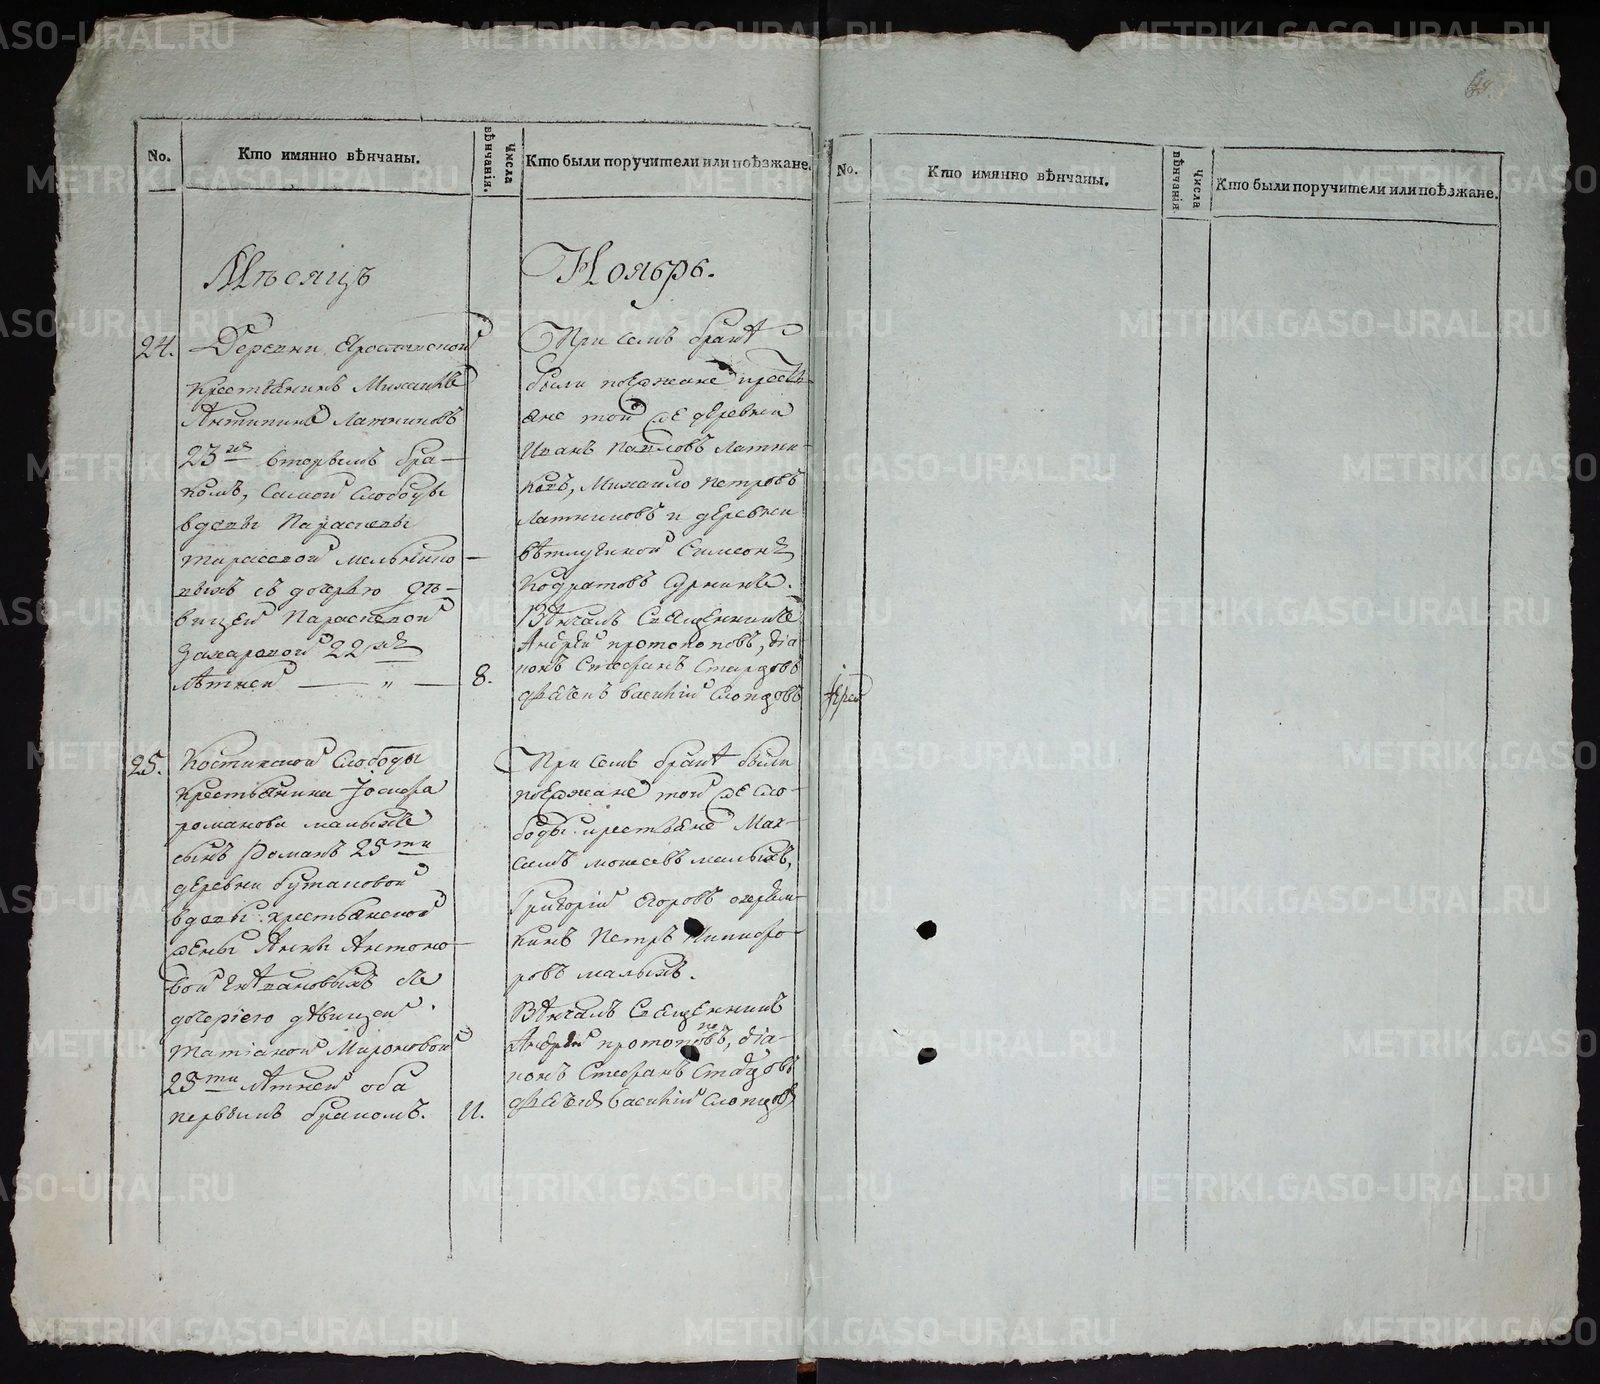 No.
Кто имянно вѣнчаны.
Числа вѣнчанія.
Кто были поручители или поѣзжане.
Мѣсяцъ
Ноябрь.
24.
Деревни
крестьянинъ Михаилъ
Антипинъ Латниковъ
23 вторымъ бра-
комъ, самой слободы
вдовы Параскевы
тарасовой мельнико-
выхъ съ дочерью дѣ-
вицей Параскевой
Захаровой 22
лѣтней — „ —
8.
При семъ бракѣ
были поезжане кресть-
яне той же деревни
Иванъ Павловъ Латни-
ковъ, Михайло петровъ
Латниковъ и деревни
Ветлугиной Симеонъ
Кодратовъ
Вѣнчалъ Священникъ
Андрей протопоповъ, діа-
конъ Стефанъ
Василій Слопцовъ
25.
Костинской Слободы
крестьянина Іосифа
романова малыхъ
сынъ Романъ 25ти
деревни бутаковой
вдовы крестьянской
жены Анны Антоно-
вой съ
дочерію дѣвицей
татіаной Мироновой
23ти лѣтней оба
первымъ бракомъ.
11.
При семъ бракѣ были
поезжане той же сло-
боды крестьяне Мак-
симъ моисеевъ малыхъ,
Григорій Егоровъ
Петръ Никифо-
ровъ малыхъ.
Вѣнчалъ Священникъ
Андрей протопоповъ, діа-
конъ Стефанъ
Василій Слопцовъ
No.
Кто имянно вѣнчаны.
Числа вѣнчанія
Кто были поручители или поѣзжане.
METRIKI.GASO-URAL.RU